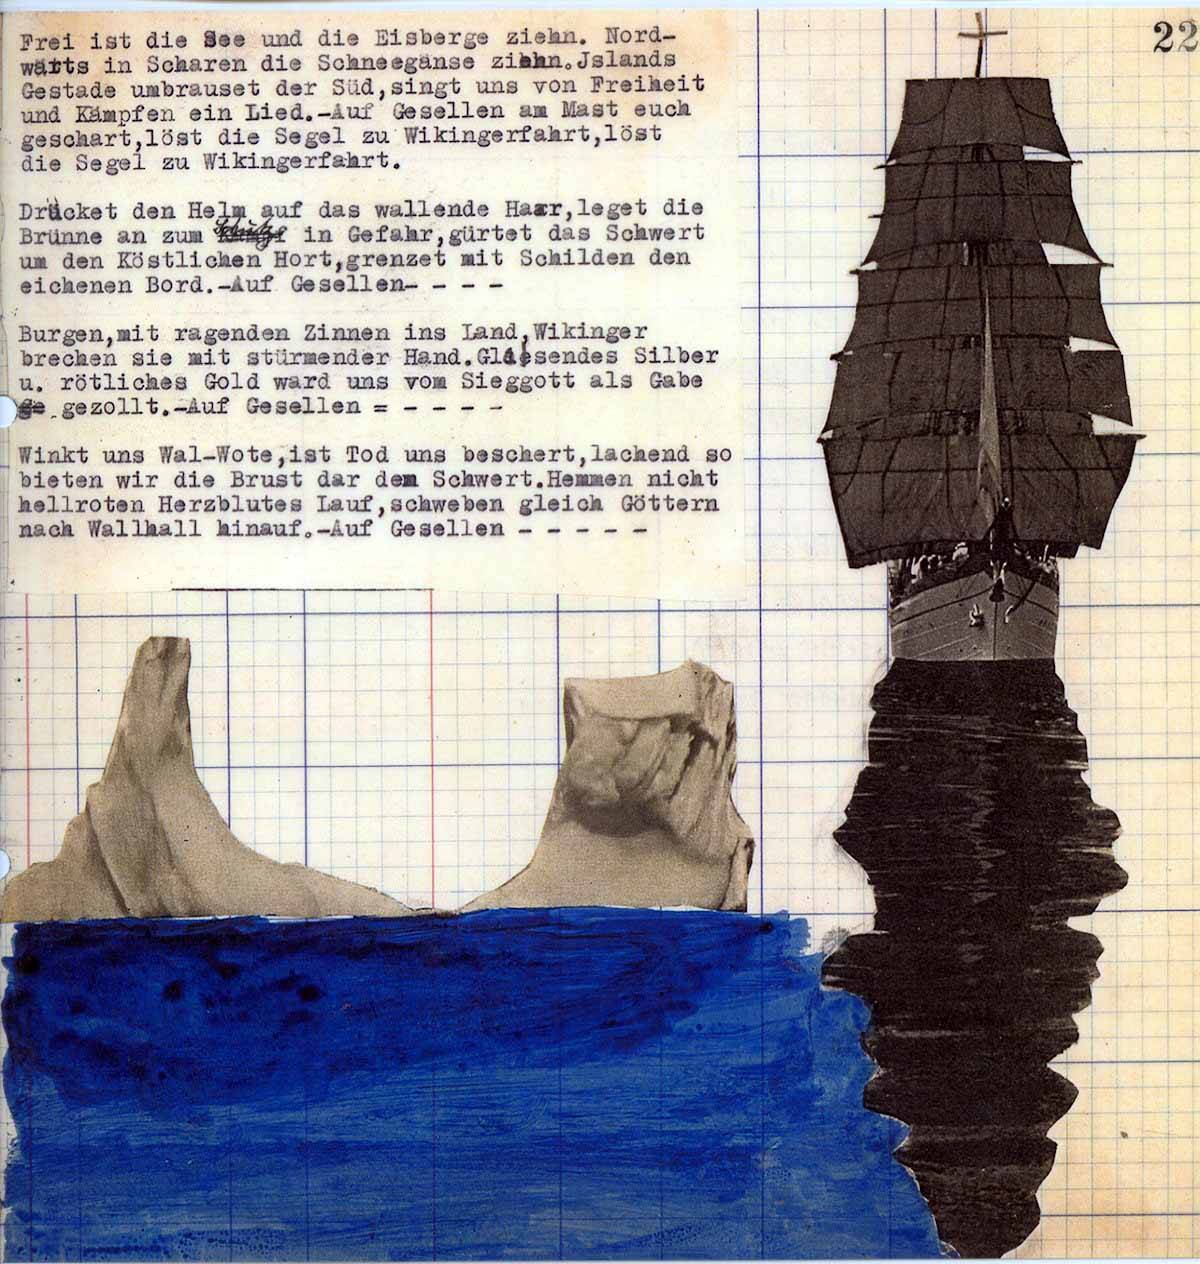 22
Frei ist die See und die Eisberge ziehn. Nord-
wärts in Scharen die Schneegänse ziehn.Jslands
Gestade umbrauset der Süd,singt uns von Freiheit
und Kämpfen ein Lied.-Auf Gesellen am Mast euch
geschart,löst die Segel zu Wikingerfahrt,löst
die Segel zu Wikingerfahrt.
Drücket den Helm auf das wallende Haar,leget die
Brünne an zum Schutz in Gefahr,gürtet das Schwert
um den Köstlichen Hort,grenzet mit Schilden den
eichenen Bord.-Auf Gesellen- - - -
Burgen,mit ragenden Zinnen ins Land,Wikinger
brechen sie mit stürmender Hand.Gleisendes Silber
u. rötliches Gold ward uns vom Sieggott als Gabe
gezollt.-Auf Gesellen = - - - -
Winkt uns Wal-Wote,ist Tod uns beschert,lachend so
bieten wir die Brust dar dem Schwert.Hemmen nicht
hellroten Herzblutes Lauf,schweben gleich Göttern
nach Wallhall hinauf.-Auf Gesellen - - - - -